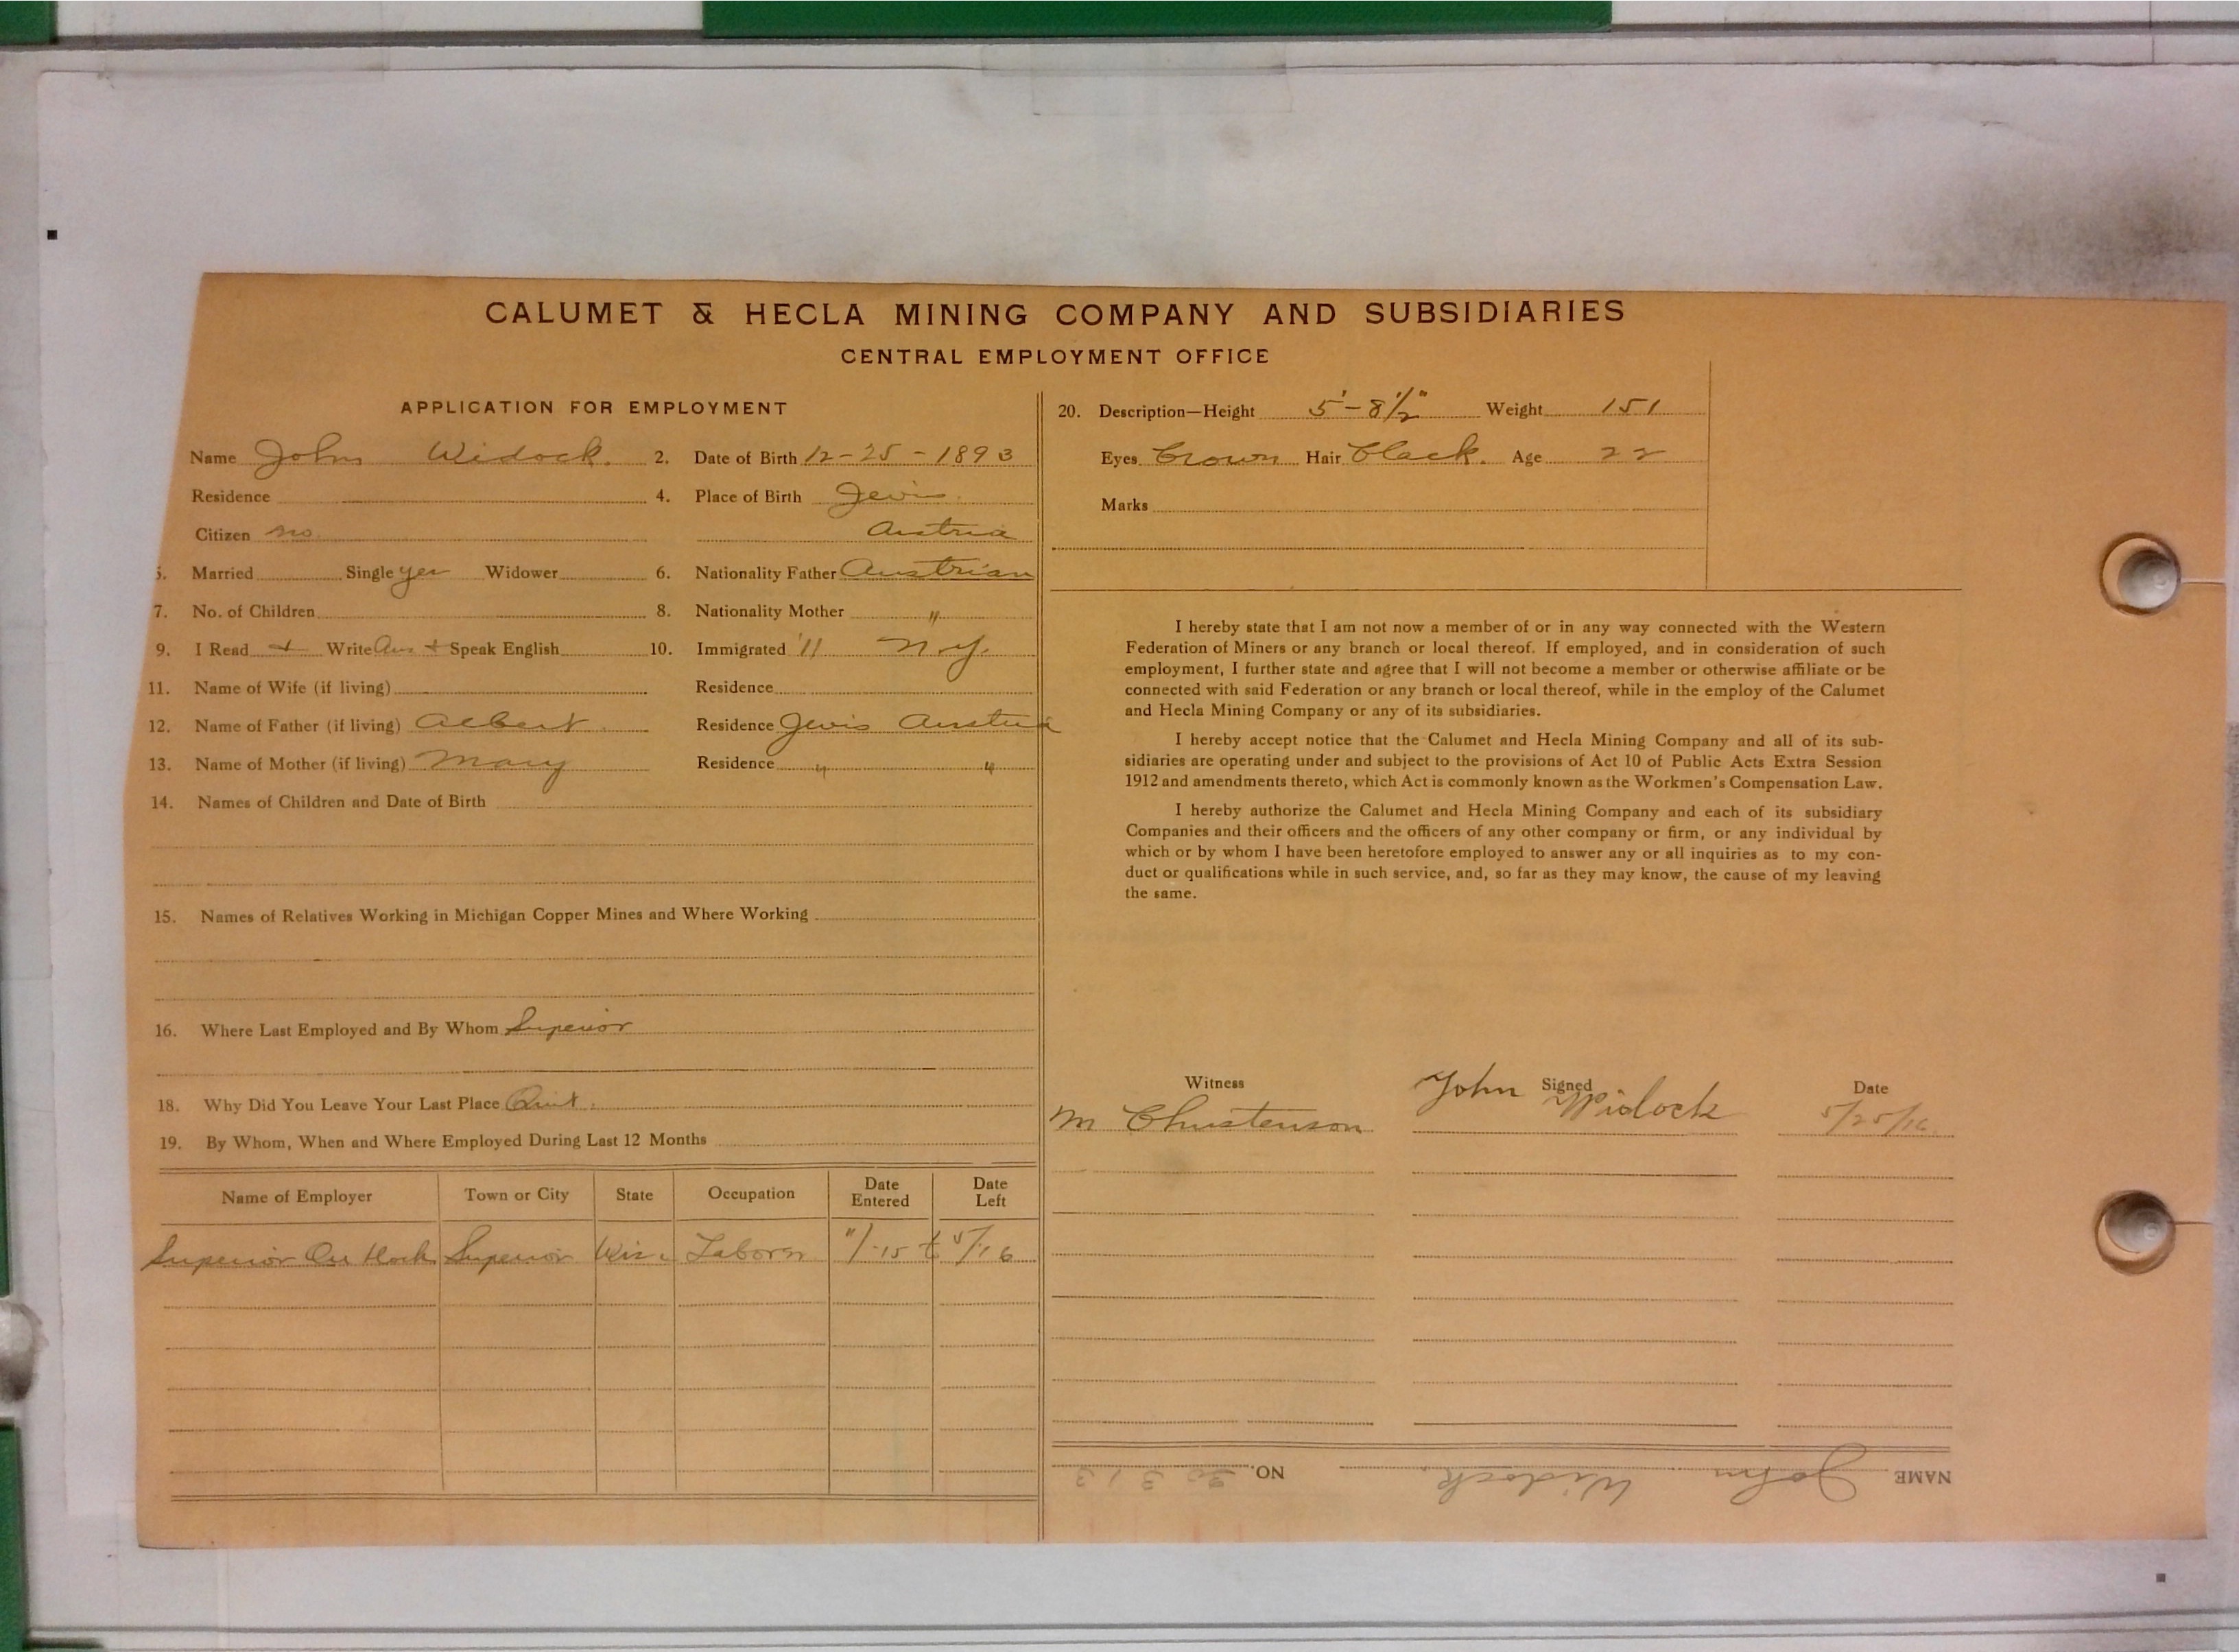 CALUMET & HECLA MINING COMPANY AND SUBSIDIARIES
CENTRAL EMPLOYMENT OFFICE
APPLICATION FOR EMPLOYMENT
Name John Widock. 2. Date of Birth 12-25-1893
Residence 4. Place of Birth Jevis.
Citizen no Austria
5. Married Single yes Widower 6. Nationality Father Austrian
7. No. of Children 8. Nationality Mother "
9. I Read + Write Aus + Speak English 10. Immigrated '11 N.Y.
11. Name of Wife (if living) Residence
12. Name of Father (if living) Albert Residence Jevis Austria
13. Name of Mother (if living) Mary Residence " "
14. Names of Children and Date of Birth
15. Names of Relatives Working in Michigan Copper Mines and Where Working
16. Where Last Employed and By Whom Superior
18. Why Did You Leave Your Last Place Quit.
19. By Whom, When and Where Employed During Last 12 Months
Name of Employer Town or City State Occupation Date Entered Date Left
Superior Superior Wis. 11/-15 5/-16
20. Description—Height 5'-8½" Weight 151
Eyes Brown Hair Black. Age 22
Marks
I hereby state that I am not now a member of or in any way connected with the Western
Federation of Miners or any branch or local thereof. If employed, and in consideration of such
employment, I further state and agree that I will not become a member or otherwise affiliate or be
connected with said Federation or any branch or local thereof, while in the employ of the Calumet
and Hecla Mining Company or any of its subsidiaries.
I hereby accept notice that the Calumet and Hecla Mining Company and all of its sub-
sidiaries are operating under and subject to the provisions of Act 10 of Public Acts Extra Session
1912 and amendments thereto, which Act is commonly known as the Workmen's Compensation Law.
I hereby authorize the Calumet and Hecla Mining Company and each of its subsidiary
Companies and their officers and the officers of any other company or firm, or any individual by
which or by whom I have been heretofore employed to answer any or all inquiries as to my con-
duct or qualifications while in such service, and, so far as they may know, the cause of my leaving
the same.
Witness Signed Date
M Christenson John Widock 5/25/16
NAME John Widock. NO.